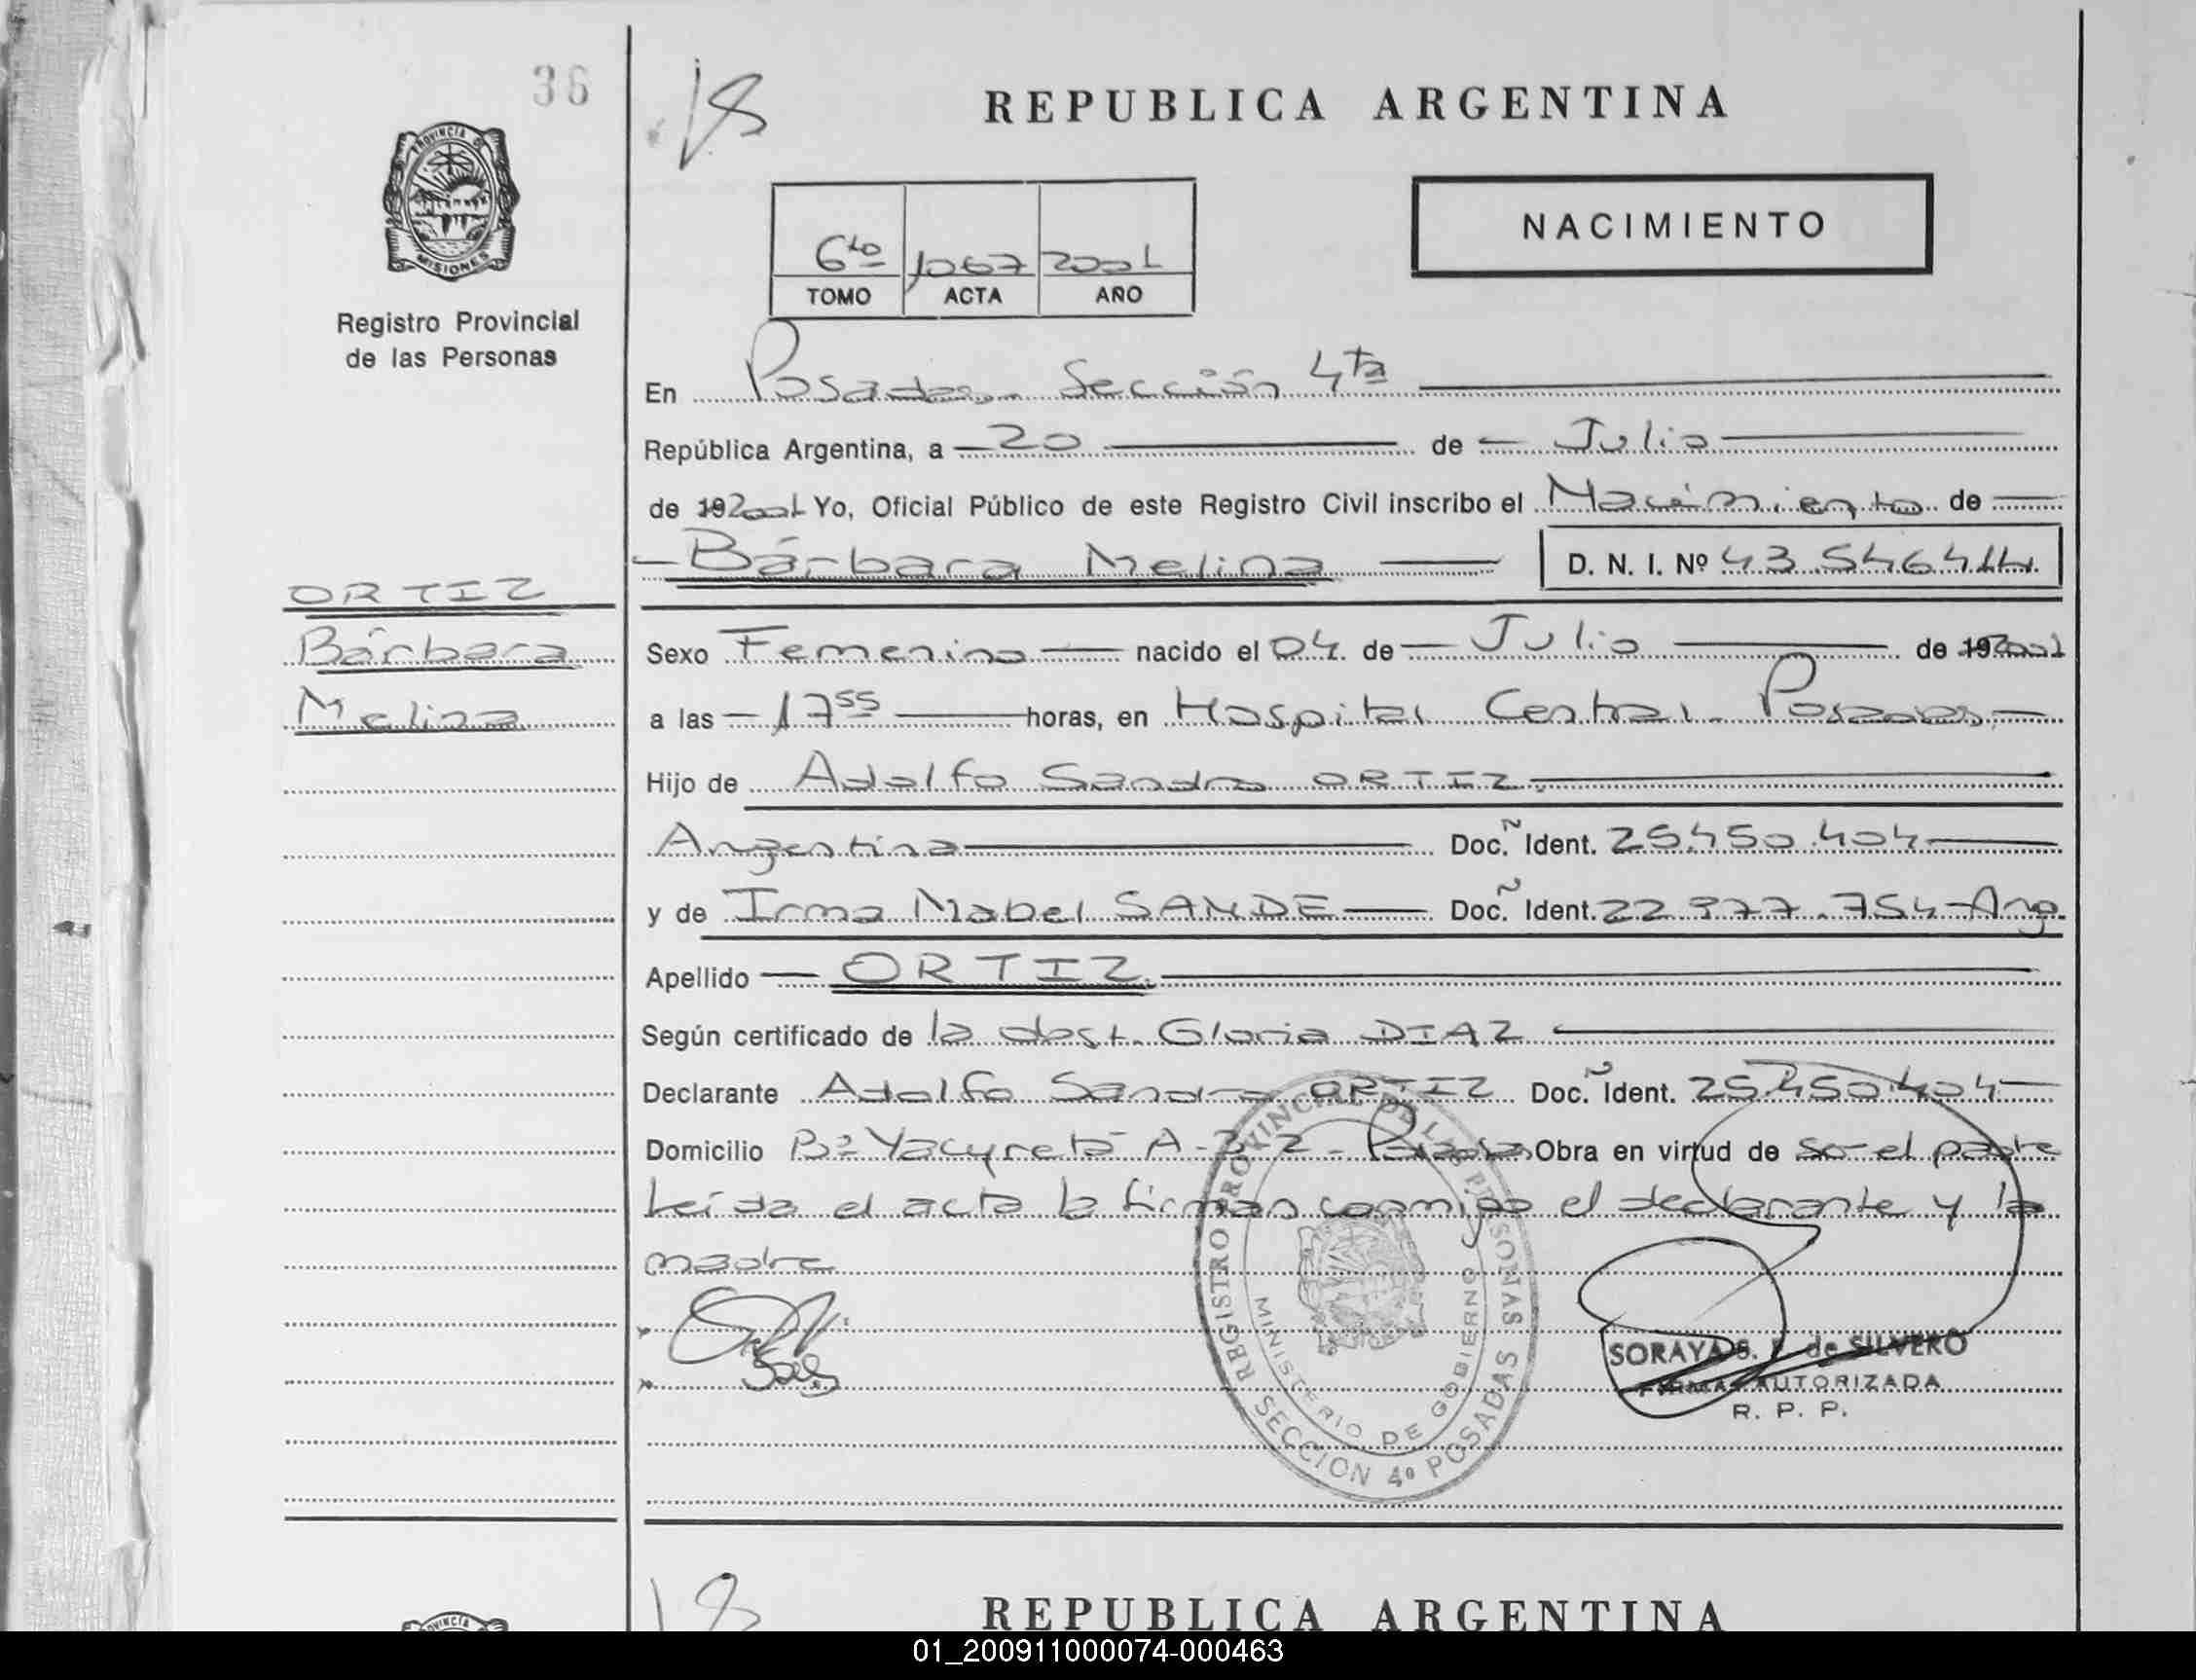 36
18
REPUBLICA ARGENTINA
PROVINCIA D
MISIONES
Registro Provincial
de las Personas
6to 1067 2001
TOMO ACTA AÑO
NACIMIENTO
En Posadas - Sección 4ta
República Argentina, a 20 de Julio
de 192001 Yo, Oficial Público de este Registro Civil inscribo el Nacimiento de
Bárbara Melina D. N. I. Nº 43.546.414.
ORTIZ
Bárbara
Melina
Sexo Femenino nacido el 04 de Julio de 192001
a las 17 55 horas, en Hospital Central - Posadas
Hijo de Adolfo Sandro ORTIZ
Argentina Doc. Ident. 25.450.404
y de Irma Mabel SANDE Doc. Ident. 22.377.754 - Arg.
Apellido ORTIZ.
Según certificado de la obst. Gloria DIAZ
Declarante Adolfo Sandro ORTIZ Doc. Ident. 25.450.404
Domicilio Bº Yacyretá A-3-2 - Posadas Obra en virtud de ser el padre
Leída el acta la firman conmigo el declarante y la
madre
REGISTRO PROVINCIAL DE LAS PERSONAS
MINISTERIO DE GOBIERNO
SECCION 4º POSADAS
SORAYA S. de SILVERO
FIRMA AUTORIZADA
R. P. P.
18
REPUBLICA ARGENTINA
01_200911000074-000463